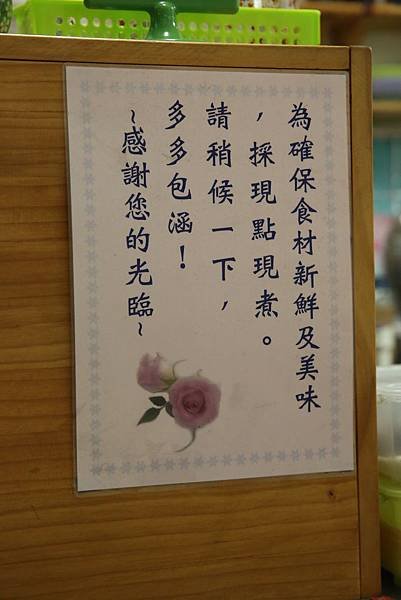 為確保食材新鮮及美味
，採現點現煮。
請稍候一下，
多多包涵！
~感謝您的光臨~